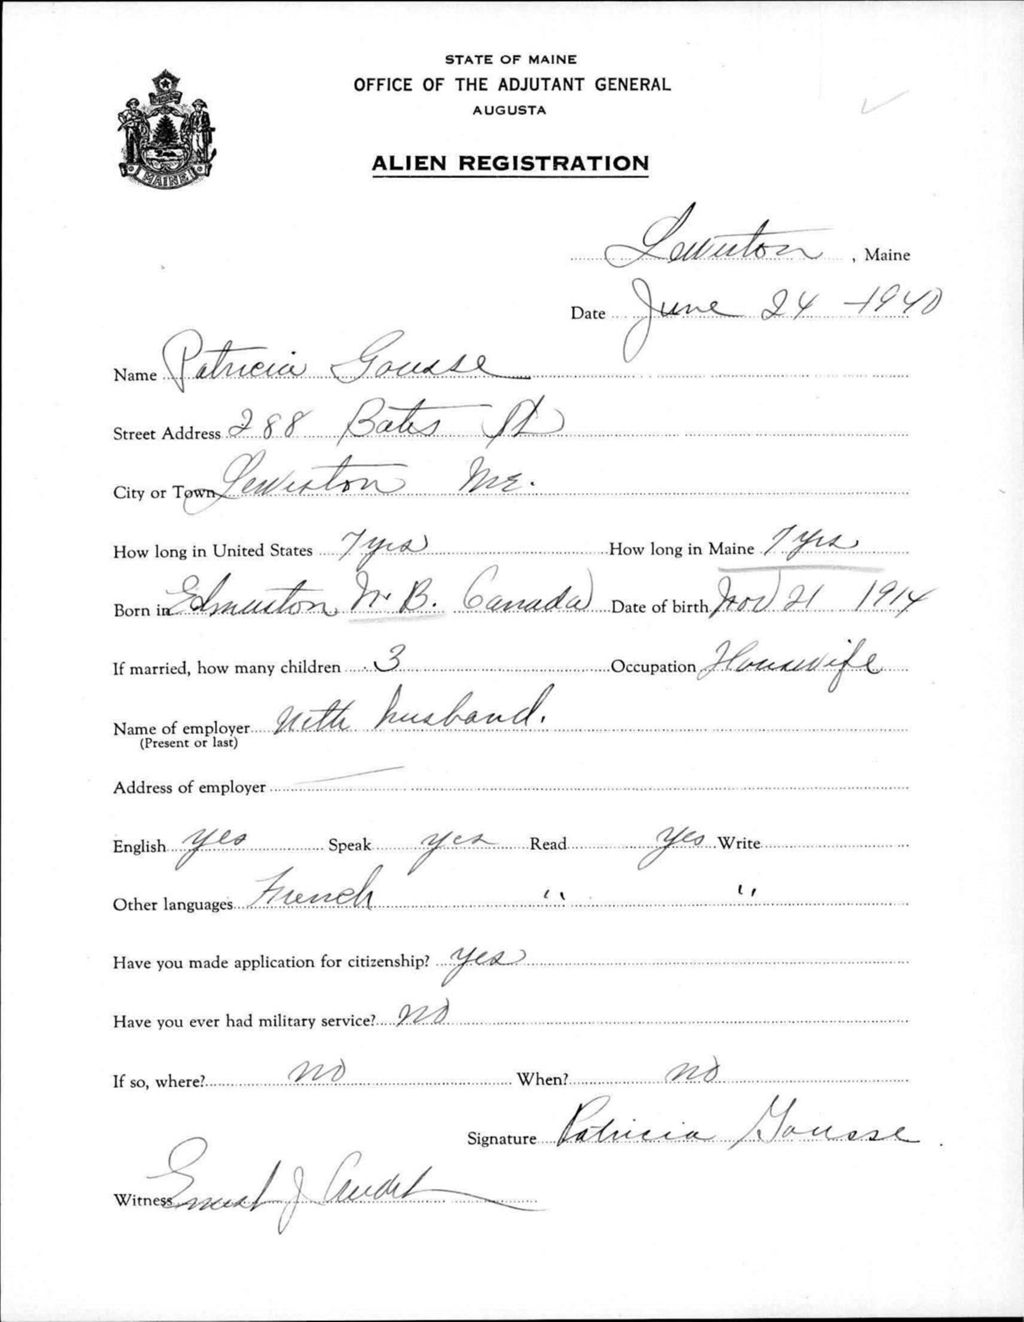 STATE OF MAINE
OFFICE OF THE ADJUTANT GENERAL
AUGUSTA
MAINE
ALIEN REGISTRATION
Lewiston, Maine
Date June 24 - 1940
Name Patricia Gousse
Street Address 288 Bates St
City or Town Lewiston Me.
How long in United States 7 yrs How long in Maine 7 yrs
Born in Edmunston N. B. Canada Date of birth Nov 21 1914
If married, how many children 3 Occupation Housewife
Name of employer With husband.
(Present or last)
Address of employer
English yes Speak yes Read yes Write
Other languages French " "
Have you made application for citizenship? yes
Have you ever had military service? no
If so, where? no When? no
Signature Patricia Gousse
Witness Ernest J Audet